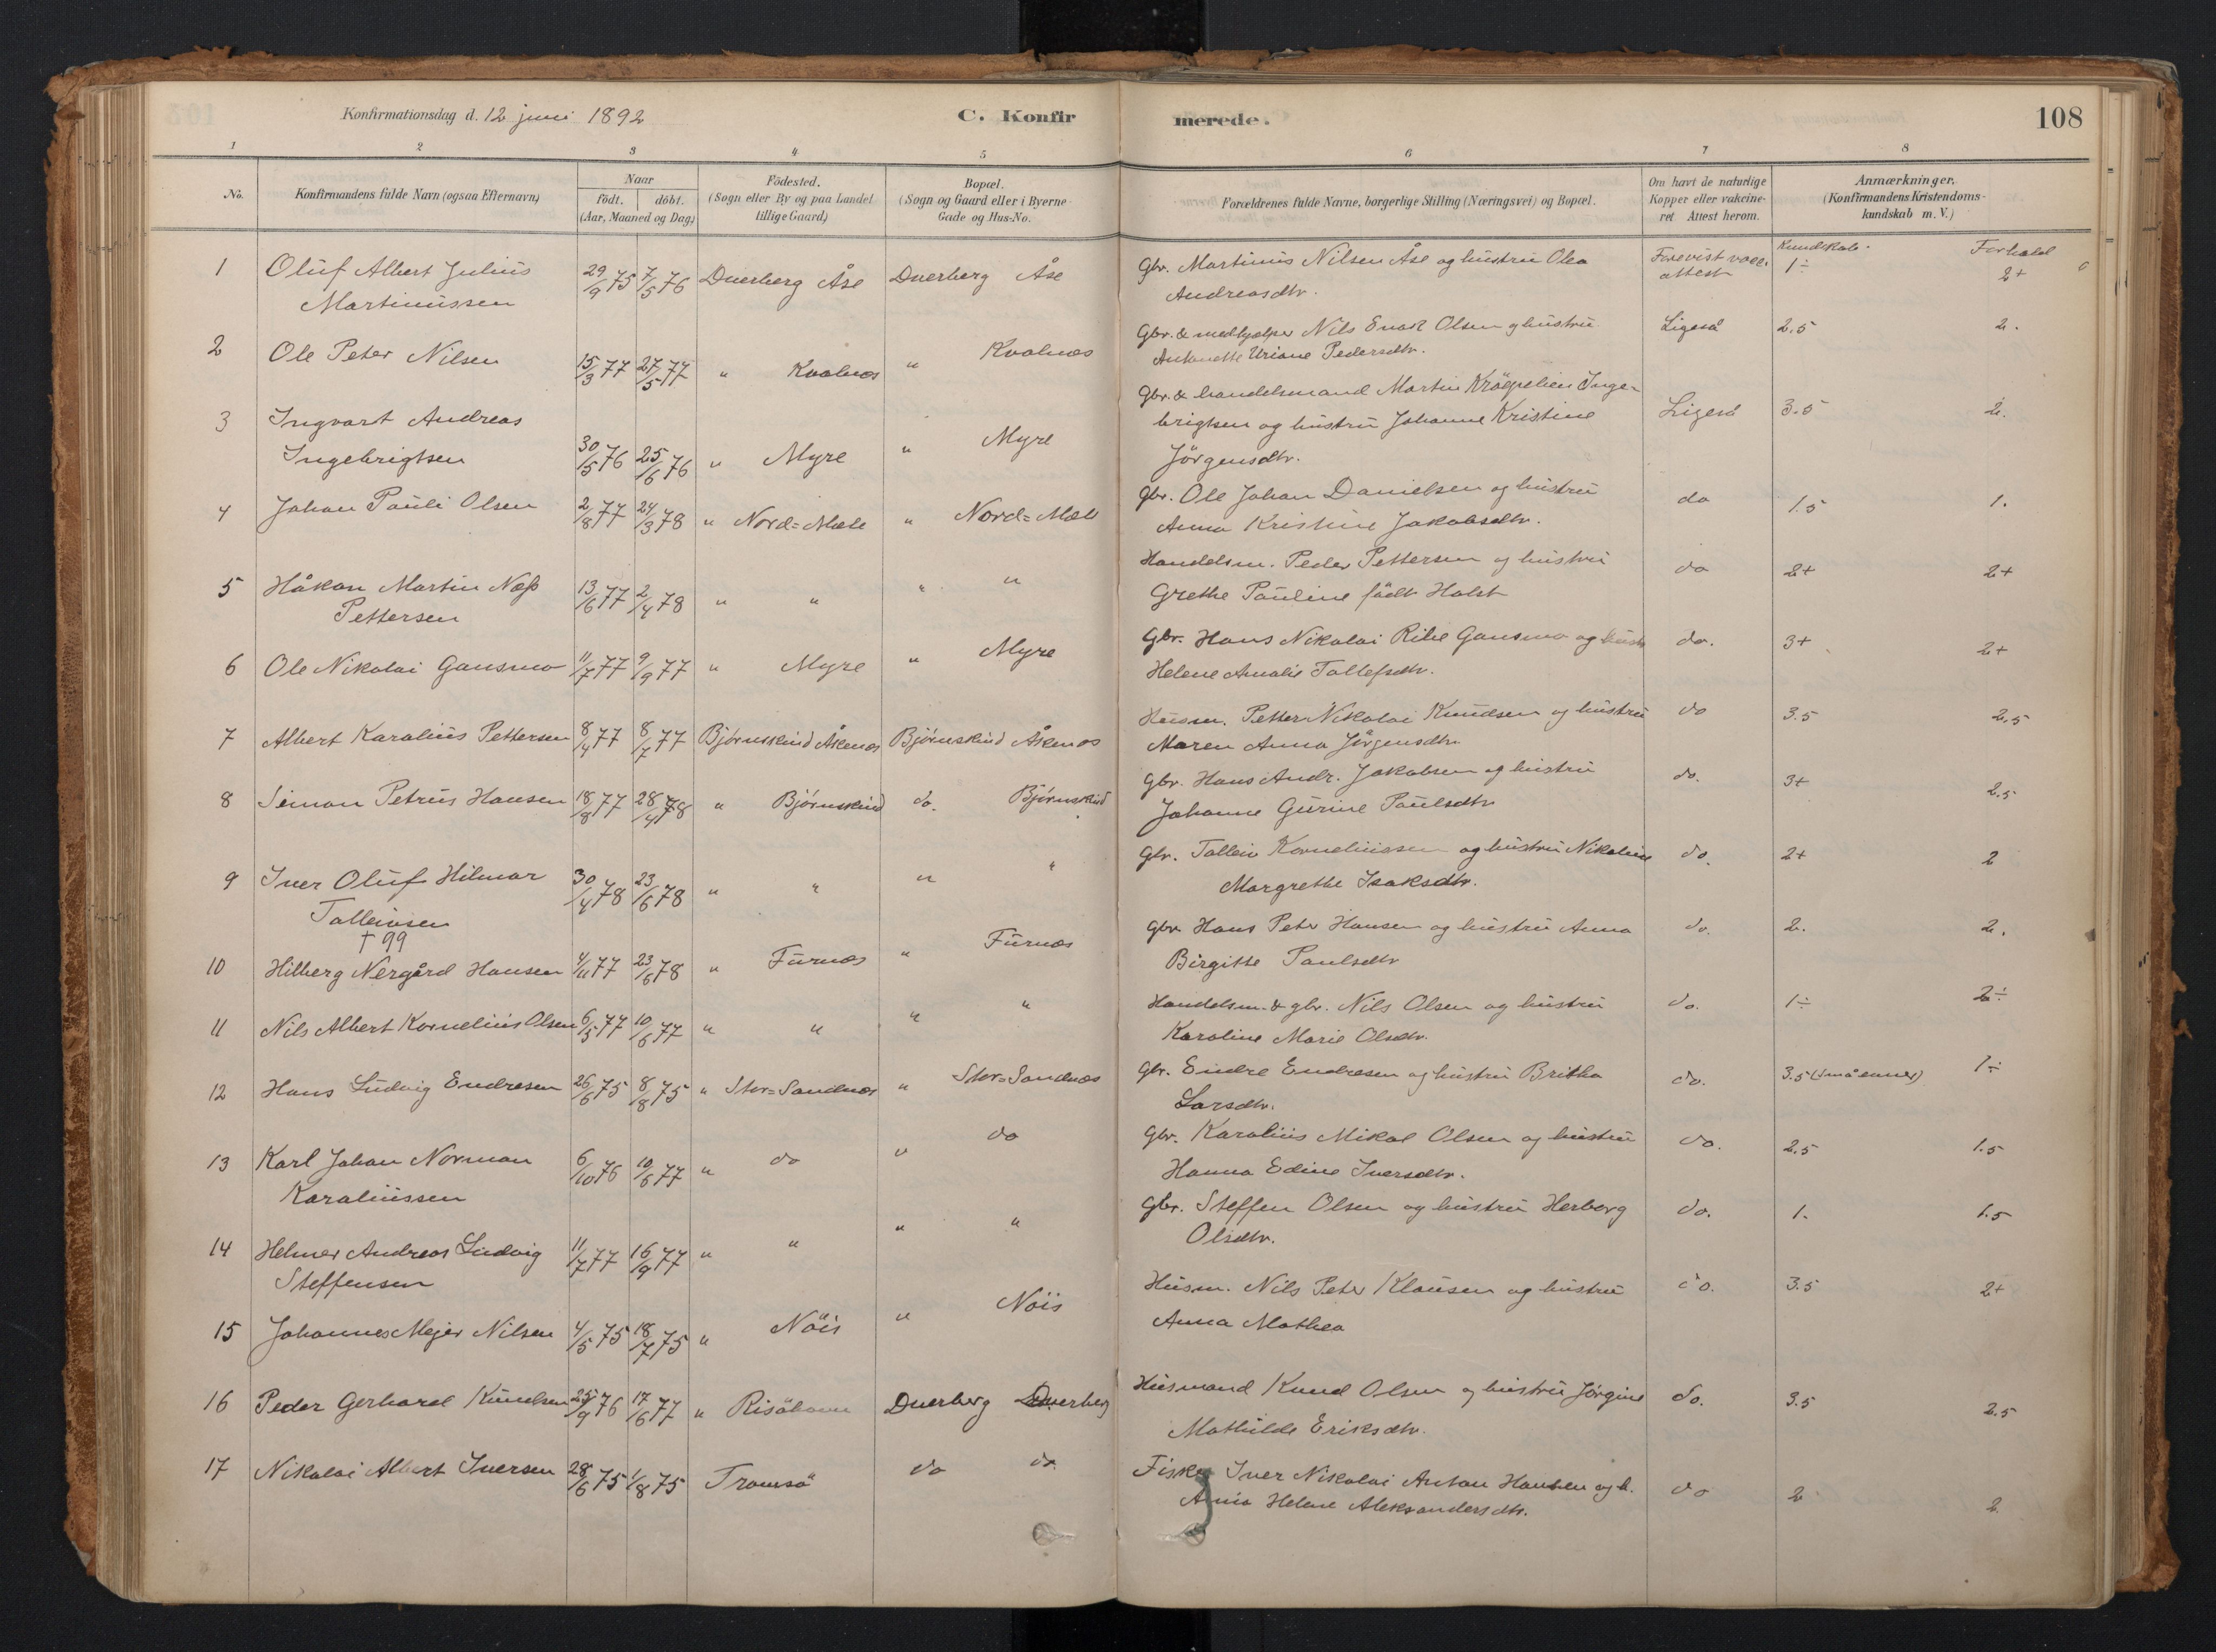 Konfirmationsdag d. 12 juni 1892 C. Konfirmerede. 108
1 2 3 4 5 6 7 8
No. Konfirmandens fulde Navn (ogsaa Efternavn) Naar födt. döbt. (Aar, Maaned og Dag) Födested. (Sogn eller By og paa Landet tillige Gaard) Bopæl. (Sogn og Gaard eller i Byerne Gade og Hus-No. Forældrenes fulde Navne, borgerlige Stilling (Næringsvei) og Bopæl. Om havt de naturlige Kopper eller vakcineret Attest herom. Anmærkninger. (Konfirmandens Kristendomskundskab m. V.)
Kundskab. Forhold
1 Oluf Albert Julius 29/9 75 7/5 76 Dverberg Åse Dverberg Åse Gbr. Martinus Nilsen Åse og hustru Olea Forevist vacc. 1÷ 2+
Martinussen Andreasdtr. attest
2 Ole Peter Nilsen 15/3 77 27/5 77 " Kvalnæs " Kvalnæs Gbr. & medhjelper Nils Enok Olsen og hustru Ligeså 2.5 2.
Antonette Uriane Pedersdtr.
3 Ingvart Andreas Gbr. & handelsmand Martin Krägelien Inge-
Ingebrigtsen 30/5 76 25/6 76 " Myre " Myre brigtsen og hustru Johanne Kristine Ligeså 3.5 2.
Jörgensdtr.
4 Johan Pauli Olsen 2/8 77 24/3 78 " Nord=Mæle " Nord=Mæle Gbr. Ole Johan Danielsen og hustru do 1.5 1.
Anna Kristine Jakobsdtr.
5 Håkon Martin Næss 13/6 77 2/4 78 " " " " Handelsm. Peder Pettersen og hustru do 2+ 2+
Pettersen Grethe Pauline født Holst
6 Ole Nikolai Gausmo 11/7 77 9/9 77 " Myre " Myre Gbr. Hans Nikolai Gausmo og hustr do. 3+ 2+
Helene Amalie Tollefsdtr.
7 Albert Karolius Pettersen 8/4 77 8/7 77 Bjørnskind Åkenæs Bjørnskind Åkenæs Husm. Petter Nikolai Knudsen og hustru do 3.5 2.5
Maren Anna Jörgensdtr.
8 Simon Petrus Hansen 18/8 77 28/4 78 " Bjørnskind do. Bjørnskind Gbr. Hans Andr. Jakobsen og hustru do. 3+ 2.5
Johanne Gurine Paulsdtr
9 Iver Oluf Hilmar 30/4 78 23/6 78 " " " " Gbr. Tolleiv Korneliussen og hustru Nikoline do. 2+ 2
Tolleivsen Margrethe Isaksdtr.
† 99
10 Hilberg Nergård Hansen 4/11 77 23/6 78 " Furnæs " Furnæs Gbr Hans Peter Hansen og hustru Anna do. 2. 2.
Birgitte Paulsdtr
11 Nils Albert Kornelius Olsen 6/5 77 10/6 77 " " " " Handelsm. & gbr. Nils Olsen og hustru do. 1÷ 2÷
Karoline Marie Olsdtr.
12 Hans Ludvig Endresen 26/6 75 8/8 75 " Stor=Sandnæs " Stor=Sandnæs Gbr. Endre Endresen og hustru Britha do. 3.5 (små evner) 1÷
Larsdtr.
13 Karl Johan Norman 6/10 76 10/6 77 " do " do Gbr. Karolius Mikal Olsen og hustru do. 2.5 1.5
Karoliussen Hanna Edine Iversdtr.
14 Helmer Andreas Ludvig 11/7 77 16/9 77 " " " " Gbr. Steffen Olsen og hustru Herborg do. 1. 1.5
Steffensen Olsdtr.
15 Johannes Mejer Nilsen 4/5 75 18/7 75 " Nöis " Nöis Husm. Nils Peter Klausen og hustru do. 3.5 2+
Anna Mathea
16 Peder Gerhard Knudsen 25/9 76 17/6 77 " Risöhavn Dverberg Dverberg Husmand Knud Olsen og hustru Jörgine do. 3.5 2.5
Mathilde Eriksdtr.
17 Nikolai Albert Iversen 28/6 75 1/8 75 Tromsö do do Fisker Iver Nikolai Anton Hansen og h. do 2 2
Anna Helene Aleksandersdtr.